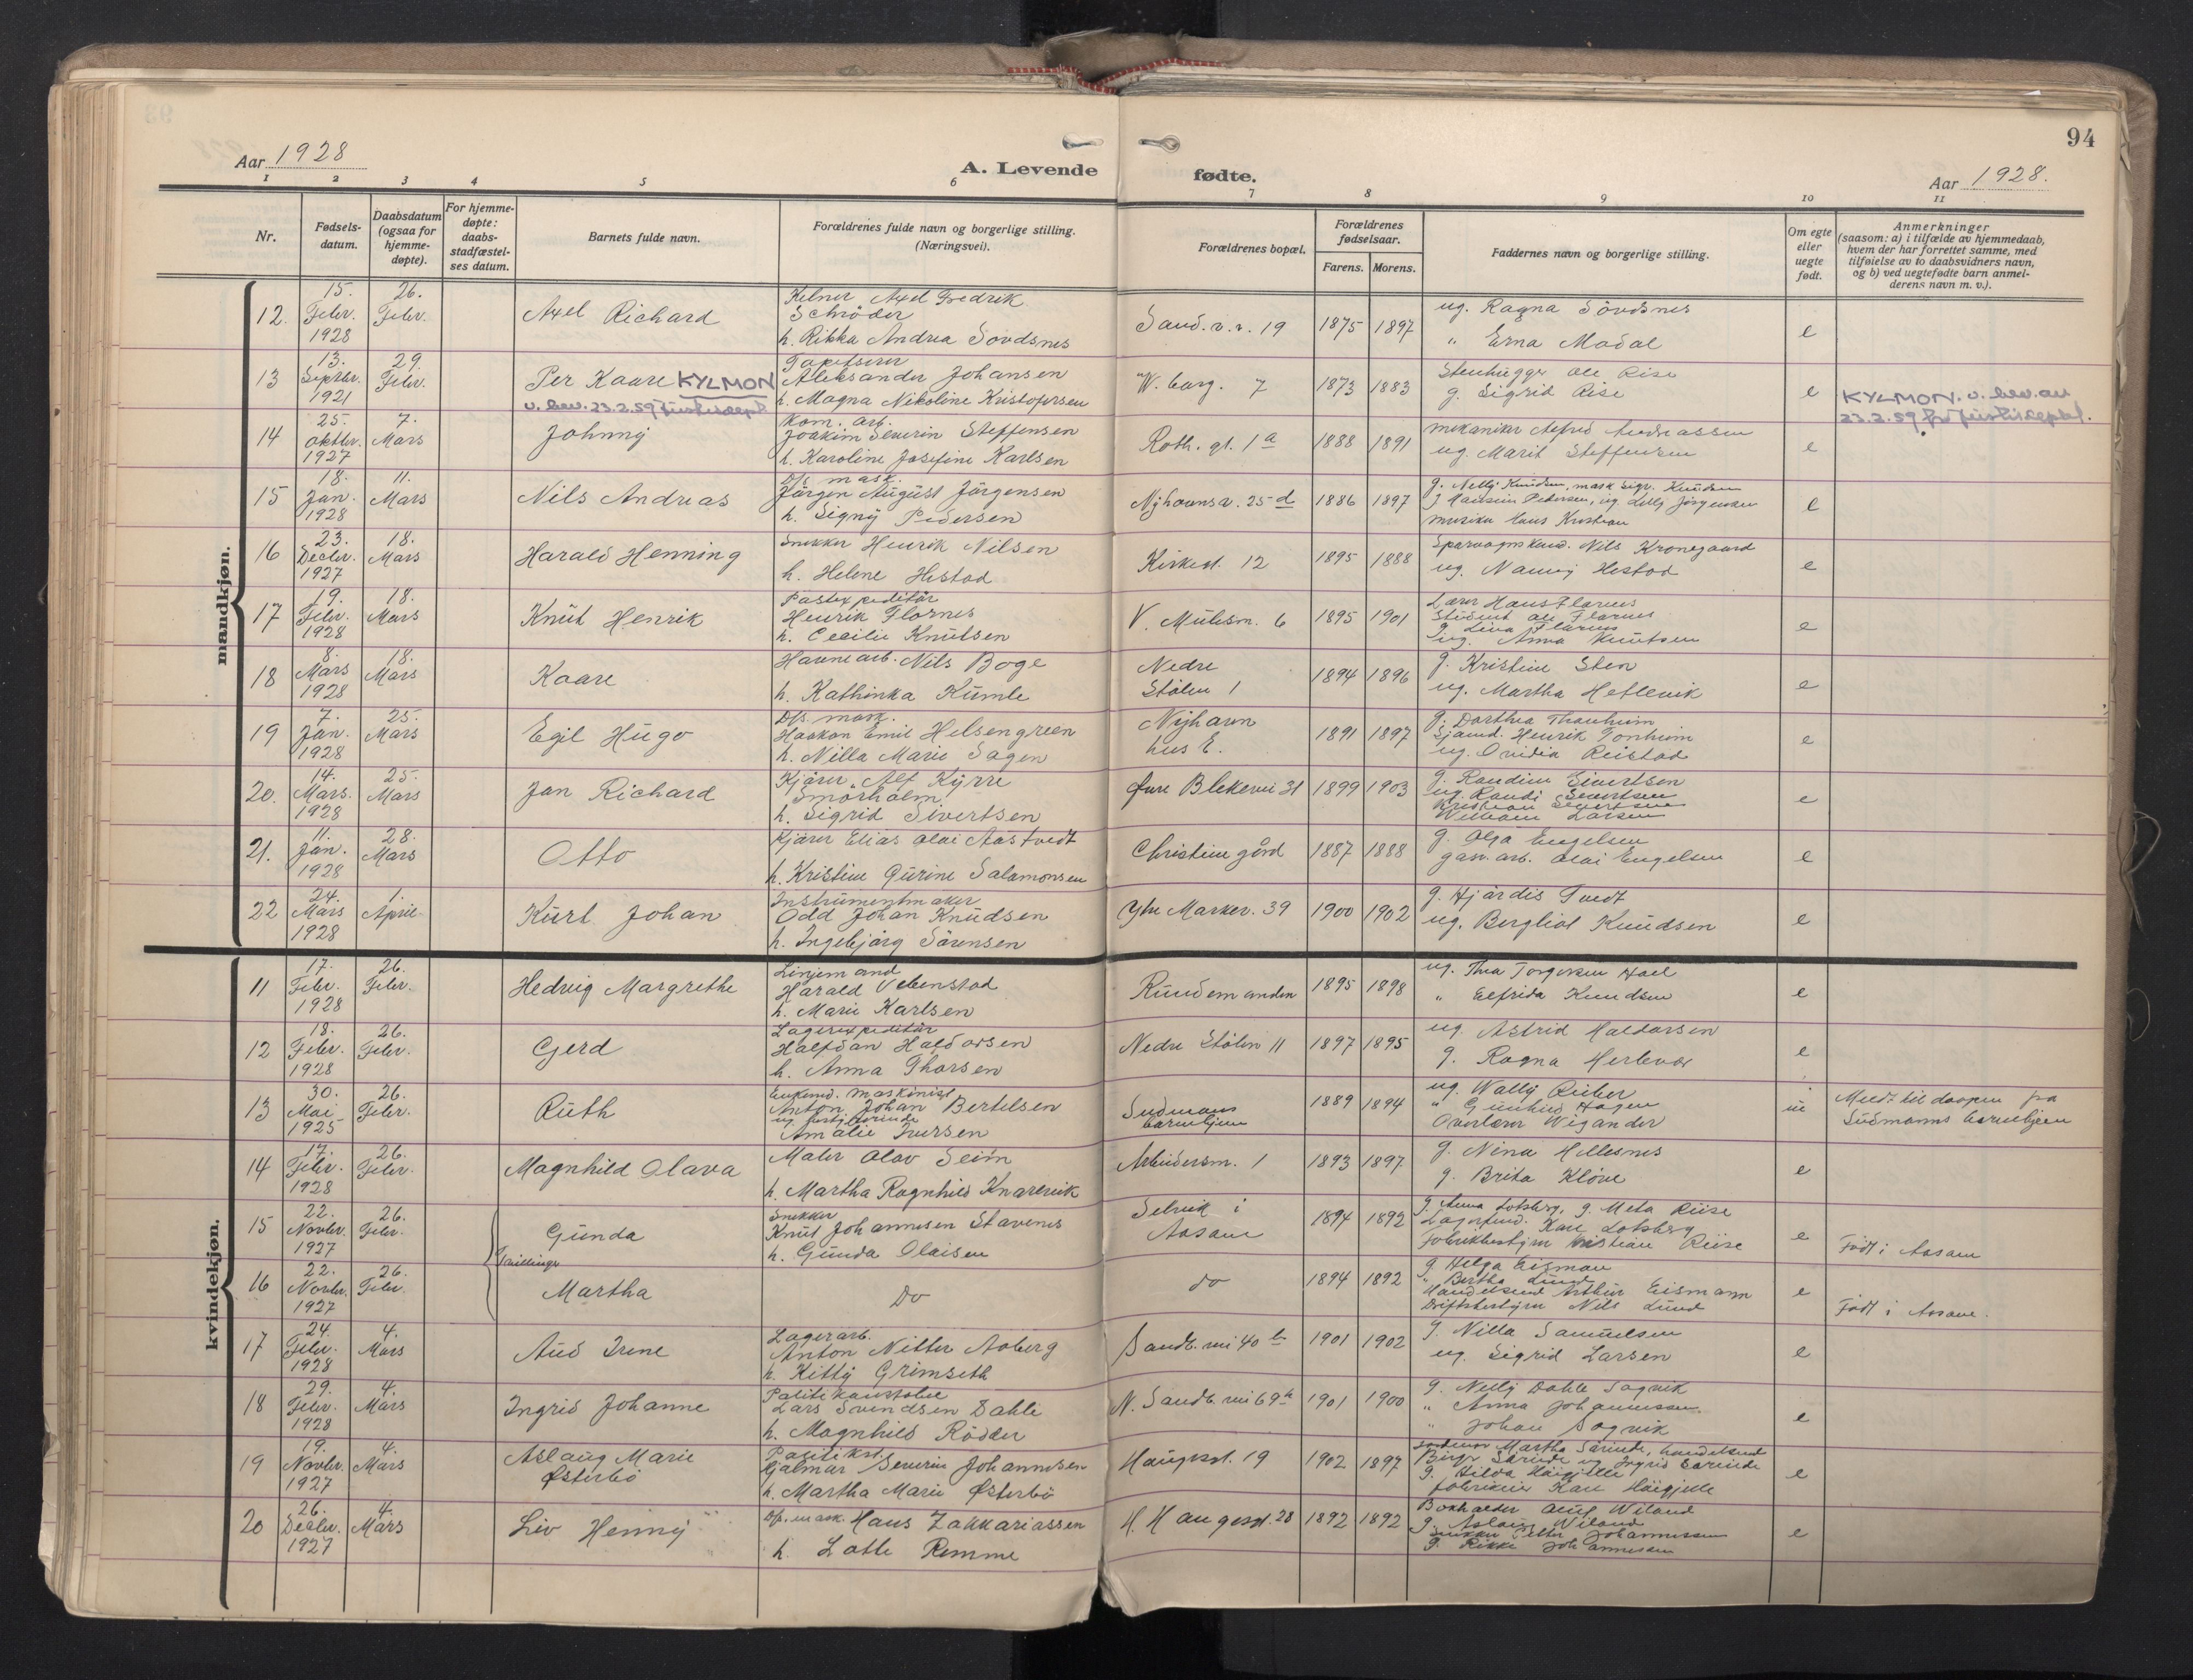 94
Aar 1928
A. Levende
fødte.
Aar 1928.
1 2 3 4 5 6 7 8 9 10 11
Nr.
Fødsels-
datum.
Daabsdatum
(ogsaa for
hjemme-
døpte).
For hjemme-
døpte:
daabs-
stadfæstel-
ses datum.
Barnets fulde navn.
Forældrenes fulde navn og borgerlige stilling.
(Næringsvei).
Forældrenes bopæl.
Forældrenes
fødselsaar.
Farens. Morens.
Faddernes navn og borgerlige stilling.
Om egte
eller
uegte
født.
Anmerkninger
(saasom: a) i tilfælde av hjemmedaab,
hvem der har forrettet samme, med
tilføielse av to daabsvidners navn,
og b) ved uegtefødte barn anmel-
derens navn m. v.).
mandkjøn.
12. 15. Febr. 1928 26. Febr. Axel Richard
Kelner Axel Fredrik
Schröder
h. Rikka Andrea Sövdsnes
Sand. v. v. 19 1875 1897
ug. Ragna Sövdsnes
" Erna Modal
e
13 13. Septbr. 1921 29. Febr. Per Kaare KYLMON
v. bev. 23.2.59 justisdept.
Tapetserer
Aleksander Johansen
h. Magna Nikoline Kristofersen
W. barg. 7 1873 1883
Stenhugger Ole Rise
g. Sigrid Rise
e
KYLMON. v. bev. av
23.2.59 fra justisdept.
14 25. Oktbr. 1927 7. Mars Johnny
Kom. arb.
Joakim Severin Steffensen
h. Karoline Josefine Karlsen
Roth. gt. 1a 1888 1891
mekaniker Alfred Andreassen
ug. Marit Steffensen
e
15 18. Jan. 1928 11. Mars Nils Andreas
D/s mask.
Jörgen August Jörgensen
h. Signy Pedersen
Nyhavnsv. 25 d 1886 1897
g. Nelly Knudsen, mask Sigv. Knudsen
Pedersen, ug. Lilly Jörgensen
musiker Hans Kristian
e
16 23. Decbr. 1927 18. Mars Harald Henning
Snekker Henrik Nilsen
h. Helene Hestad
Kirkest. 12 1895 1888
Sporvognskond. Nils Kronegaard
ug. Nanny Hestad
e
17 19. Febr. 1928 18. Mars Knut Henrik
Postexpeditör
Henrik Flornes
h. Cecilie Knutsen
V. Mulesm. 6 1895 1901
Lærer Hans Flornes
Student Ole Flornes
g. Lina Flornes
ug. Anna Knutsen
e
18 8. Mars 1928 18. Mars Kaare
Havnearb. Nils Boge
h. Kathinka Kumle
Nedre
Stölen 1 1894 1896
g. Kristine Sten
ug. Martha Hetlevik
e
19 7. Jan. 1928 25. Mars Egil Hugo
D/s. mask.
Haakon Emil Helsengreen
h. Nilla Marie Sagen
Nyhavn
hus E. 1891 1897
g. Dorthea Thonheim
Sjömd. Henrik Tonheim
ug. Ovidia Reistad
e
20. 14. Mars. 1928 25. Mars Jan Richard
Kjörer Alf Kyrre
Smörholm
h. Sigrid Sivertsen
Øvre Blekevei 31 1899 1903
g. Randine Sivertsen
ug. Randi Sivertsen
Kristian Sivertsen
William Larsen
e
21. 11. Jan. 1928 28. Mars Otto
Kjörer Elias Olai Aastvedt
h. Kristine Gurine Salamonsen
Christinegård 1887 1888
g. Olga Engelsen
gasv. arb. Olai Engelsen
e
22 24. Mars 1928 1. April Kurt Johan
Instrumentmaker
Odd Johan Knudsen
h. Ingebjörg Sörensen
Ytre Markev. 39 1900 1902
g. Hjördis Tvedt
ug. Bergliot Knudsen
e
kvindekjøn.
11 17. Febr. 1928 26. Febr. Hedvig Margrethe
Linjemand
Harald Vebenstad
h. Marie Karlsen
Rundemanden 1895 1898
ug. Thea Torgersen Hoel
" Elfrida Knudsen
e
12 18. Febr. 1928 26. Febr. Gerd
Lagerexpeditör
Halfdan Haldorsen
h. Anna Thorsen
Nedre Stölen 11 1897 1895
ug. Astrid Haldorsen
g. Ragna Herlevær
e
13 30. Mai 1925 26. Febr. Ruth
Enkemd. maskinist
Anton Johan Bertelsen
Amalie Iversen
Sudmans
barnehjem 1889 1894
ug. Wally Rieber
" Gunhild Hagen
Overlærer Wigander
u
Meldt til daapen fra
Sudmanns barnehjem
14 17. Febr. 1928 26. Febr. Magnhild Olava
Maler Olav Seim
h. Martha Ragnhild Knarevik
Arbeidersm. 1 1893 1897
g. Nina Hellesnes
g. Brita Klöve
e
15 22. Novbr. 1927 26. Febr. Gunda
Tvillinger
Snekker
Knut Johannesen Stavenes
h. Gunda Olaisen
Selvik i
Aasane 1894 1892
g. Anna Lotsberg, g. Meta Riise
Kare Lotsberg
Fabrikbestyrer Kristian Riise
e
Födt i Aasane
16 22. Novbr. 1927 26. Febr. Martha
Do
do 1894 1892
g. Helga Eismann
" Bertha Lund
Handelsmd Arthur Eismann
Driftsbestyrer Nils Lund
e
Födt i Aasane.
17 24. Febr. 1928 4. Mars Aud Irene
Lagerarb.
Anton Nitter Aoberg
h. Kitty Grimseth
Sandv. vei 40 b 1901 1902
g. Nilla Samuelsen
ug. Sigrid Larsen
e
18 29. Febr. 1928 4. Mars Ingrid Johanne
Politikonstabel
Lars Svendsen Dahle
h. Magnhild Rödder
N. Sandv. vei 69 b 1901 1900
g. Nelly Dahle Sogvik
" Anna Johannessen
" Johan Sogvik
e
19 19. Novbr. 1927 4. Mars Aslaug Marie
Østerbö
Politikst.
Hjalmar Severin Johannesen
h. Martha Marie Østerbö
Haugesst. 19 1902 1897
Martha Särinde, handelsmd
Birger Särinde ug Ingrid Särinde
g. Hilda Höigjelle
fabrikeier Kare Höigjelle
e
20 26. Decbr. 1927 4. Mars Liv Henny
D/s. mask. Hans Zakkariassen
h. Lotte Remme
H. Haugesst. 28 1892 1892
Bokholder Alf Wiland
g. Aslaug Wiland
Snekker Petter Johannessen
g. Rikke Johannessen
e